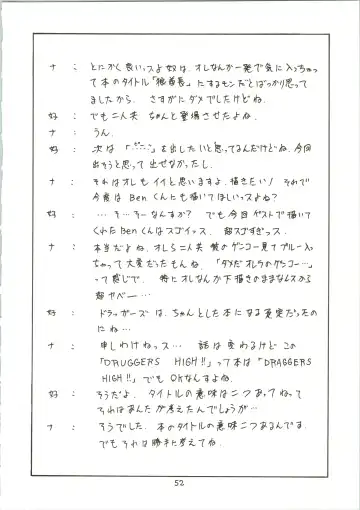 ナ： とにかく良いっスよ奴は、オレなんか一発で気に入っちゃっ
て本のタイトル「独眉長」にするモンだとばっかり思って
ましたから。さすがにダメでしたけどね。
好： でも二人共 ちゃんと登場させたよね。
ナ： うん。
好： 次は「 」を出したいと思ってるんだけどね、今回
出そうと思って出せなかったし。
ナ： それはオレもイイと思いますよ、描きたい！ それで
今度は Ben くんにも描いてほしいっスよね？
好： … そ… そーなんすか？ でも今回ゲストで描いて
くれた Ben くんはスゴイッス、超スゴすぎっス。
ナ： 本当だよね、オレら二人共 彼のゲンコー見てブルー入っ
ちゃって大変だったもんね、「ダメだオレらのゲンコー…」
って感じで、特にオレなんか下描きのまんまなんスから
超ヤベー…
好： ドラッガーズは、ちゃんとした本になる予定だったの
にね…
ナ： 申しわけねっス… 話は変わるけどこの
「DRUGGERS HIGH!!」って本は「DRAGGERS
HIGH!!」でもOKなんすよね。
好： そうだよ、タイトルの意味は二つあってねって
それはあんたが考えたんでしょうが…
ナ： そうでした、本のタイトルの意味二つあるんです、
でもそれは勝手に考えてね。
52